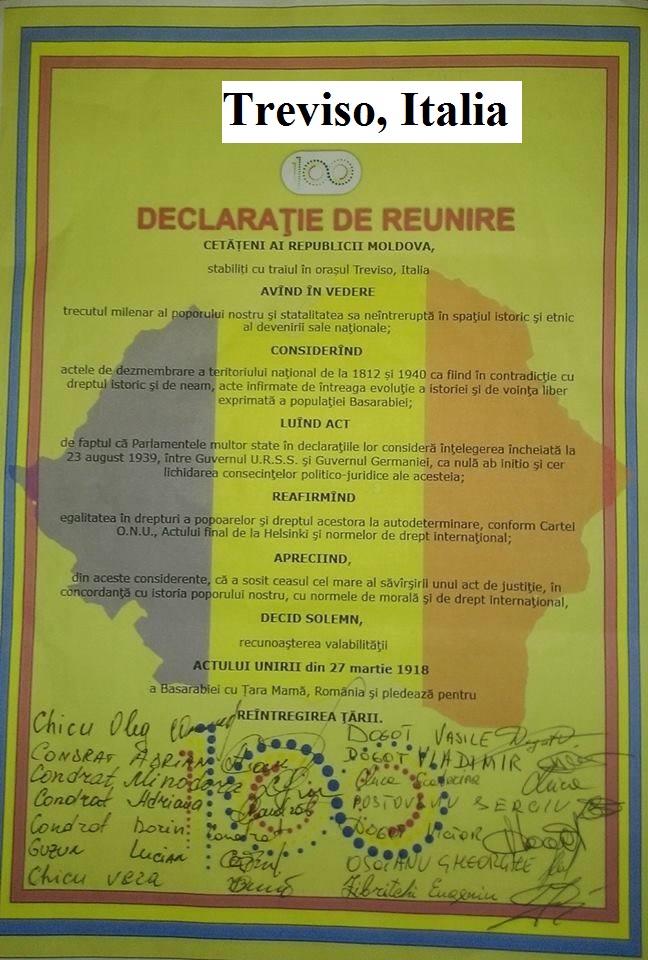 Treviso, Italia
100
DECLARAŢIE DE REUNIRE
CETĂŢENI AI REPUBLICII MOLDOVA,
stabiliţi cu traiul în oraşul Treviso, Italia
AVÎND ÎN VEDERE
trecutul milenar al poporului nostru şi statalitatea sa neîntreruptă în spaţiul istoric şi etnic
al devenirii sale naţionale;
CONSIDERÎND
actele de dezmembrare a teritoriului naţional de la 1812 şi 1940 ca fiind în contradicţie cu
dreptul istoric şi de neam, acte infirmate de întreaga evoluţie a istoriei şi de voinţa liber
exprimată a populaţiei Basarabiei;
LUÎND ACT
de faptul că Parlamentele multor state în declaraţiile lor consideră înţelegerea încheiată la
23 august 1939, între Guvernul U.R.S.S. şi Guvernul Germaniei, ca nulă ab initio şi cer
lichidarea consecinţelor politico-juridice ale acesteia;
REAFIRMÎND
egalitatea în drepturi a popoarelor şi dreptul acestora la autodeterminare, conform Cartei
O.N.U., Actului final de la Helsinki şi normelor de drept internaţional;
APRECIIND,
din aceste considerente, că a sosit ceasul cel mare al săvîrşirii unui act de justiţie, în
concordanţă cu istoria poporului nostru, cu normele de morală şi de drept internaţional,
DECID SOLEMN,
recunoaşterea valabilităţii
ACTULUI UNIRII din 27 martie 1918
a Basarabiei cu Ţara Mamă, România şi pledează pentru
REÎNTREGIREA ŢĂRII.
100
Chicu Oleg
CONDRAT ADRIAN
Condrat Minodora
Condrat Adriana
Condrat Dorin
Guzun Lucian
Chicu Vera
DOGOT VASILE
DOGOT VLADIMIR
POSTOVANU SERGIU
DOGOT VICTOR
OSOIANU GHEORGHE
Eugeniu